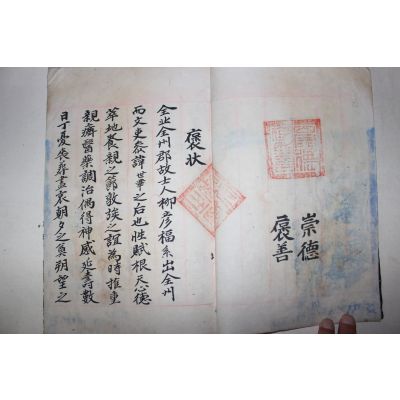 崇德
褒善
褒状
全北全州郡故士人柳彦福系出全州
而文吏參諱世華之后也性賦根天心德
萃地養親之節敦族之誼為時推重
親癠醫藥調治偶得神感延壽數
日丁憂喪葬盡哀朝夕之奠朔望之